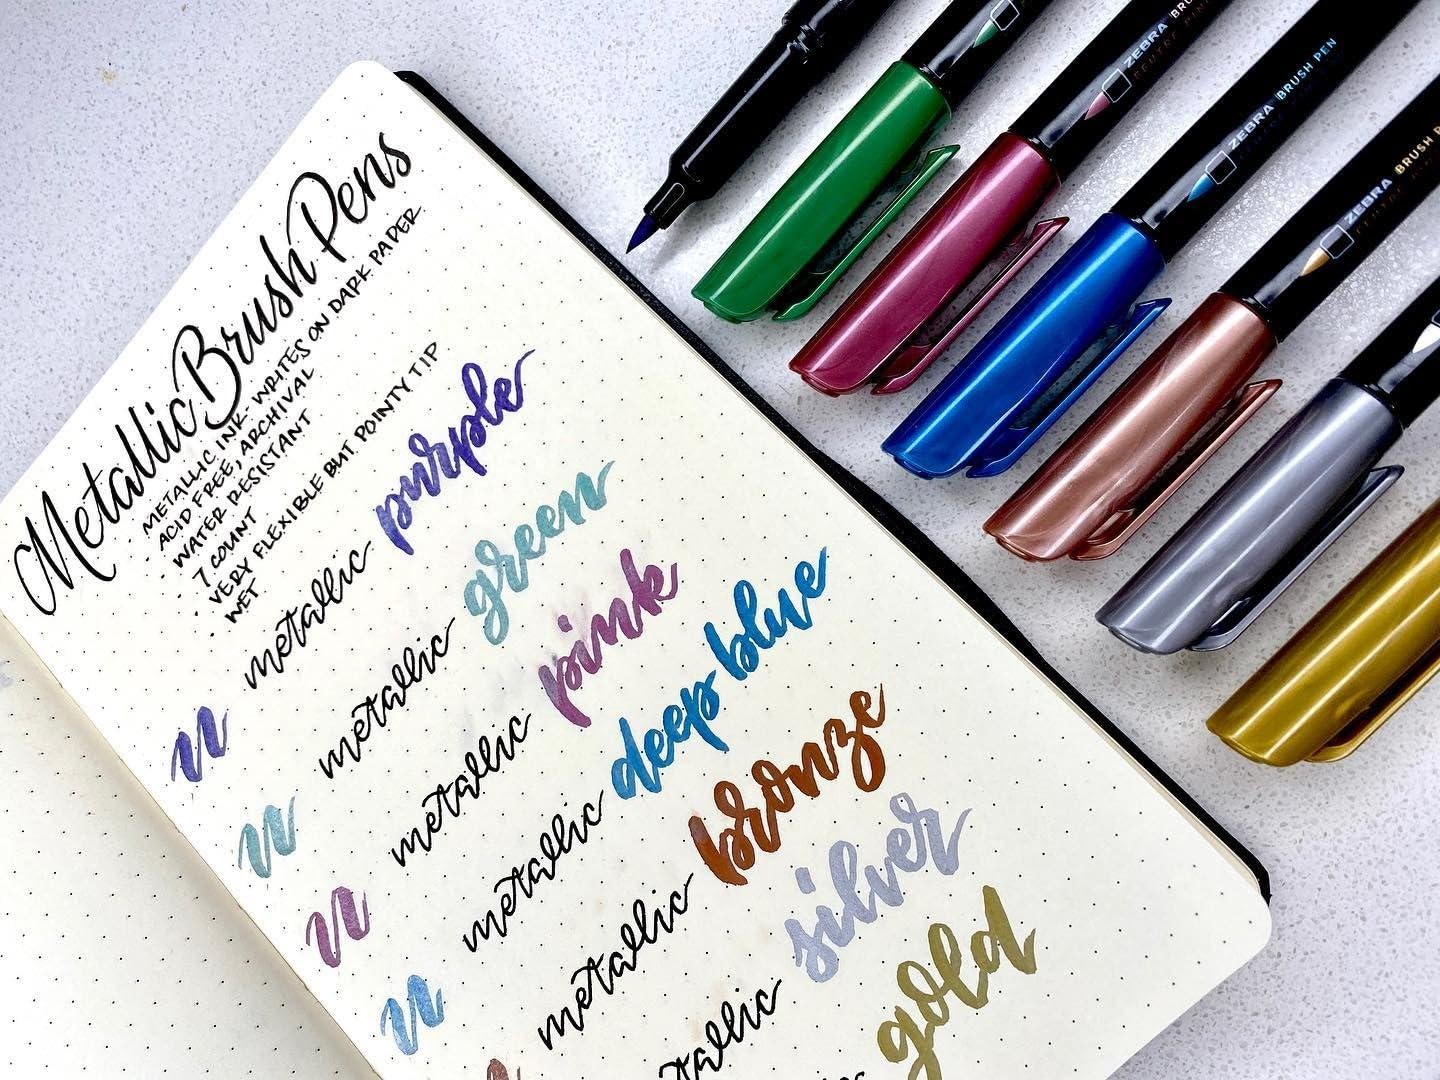 Metallic Brush Pens
METALLIC INK- WRITES ON DARK PAPER
ACID FREE, ARCHIVAL
• WATER RESISTANT
• 7 COUNT
• VERY FLEXIBLE BUT POINTY TIP
• WET
n metallic purple
n metallic green
n metallic pink
n metallic deep blue
metallic bronze
metallic silver
gold
ZEBRA BRU
ZEBRA BRUSH PEN
ZEBRA BRUSH P